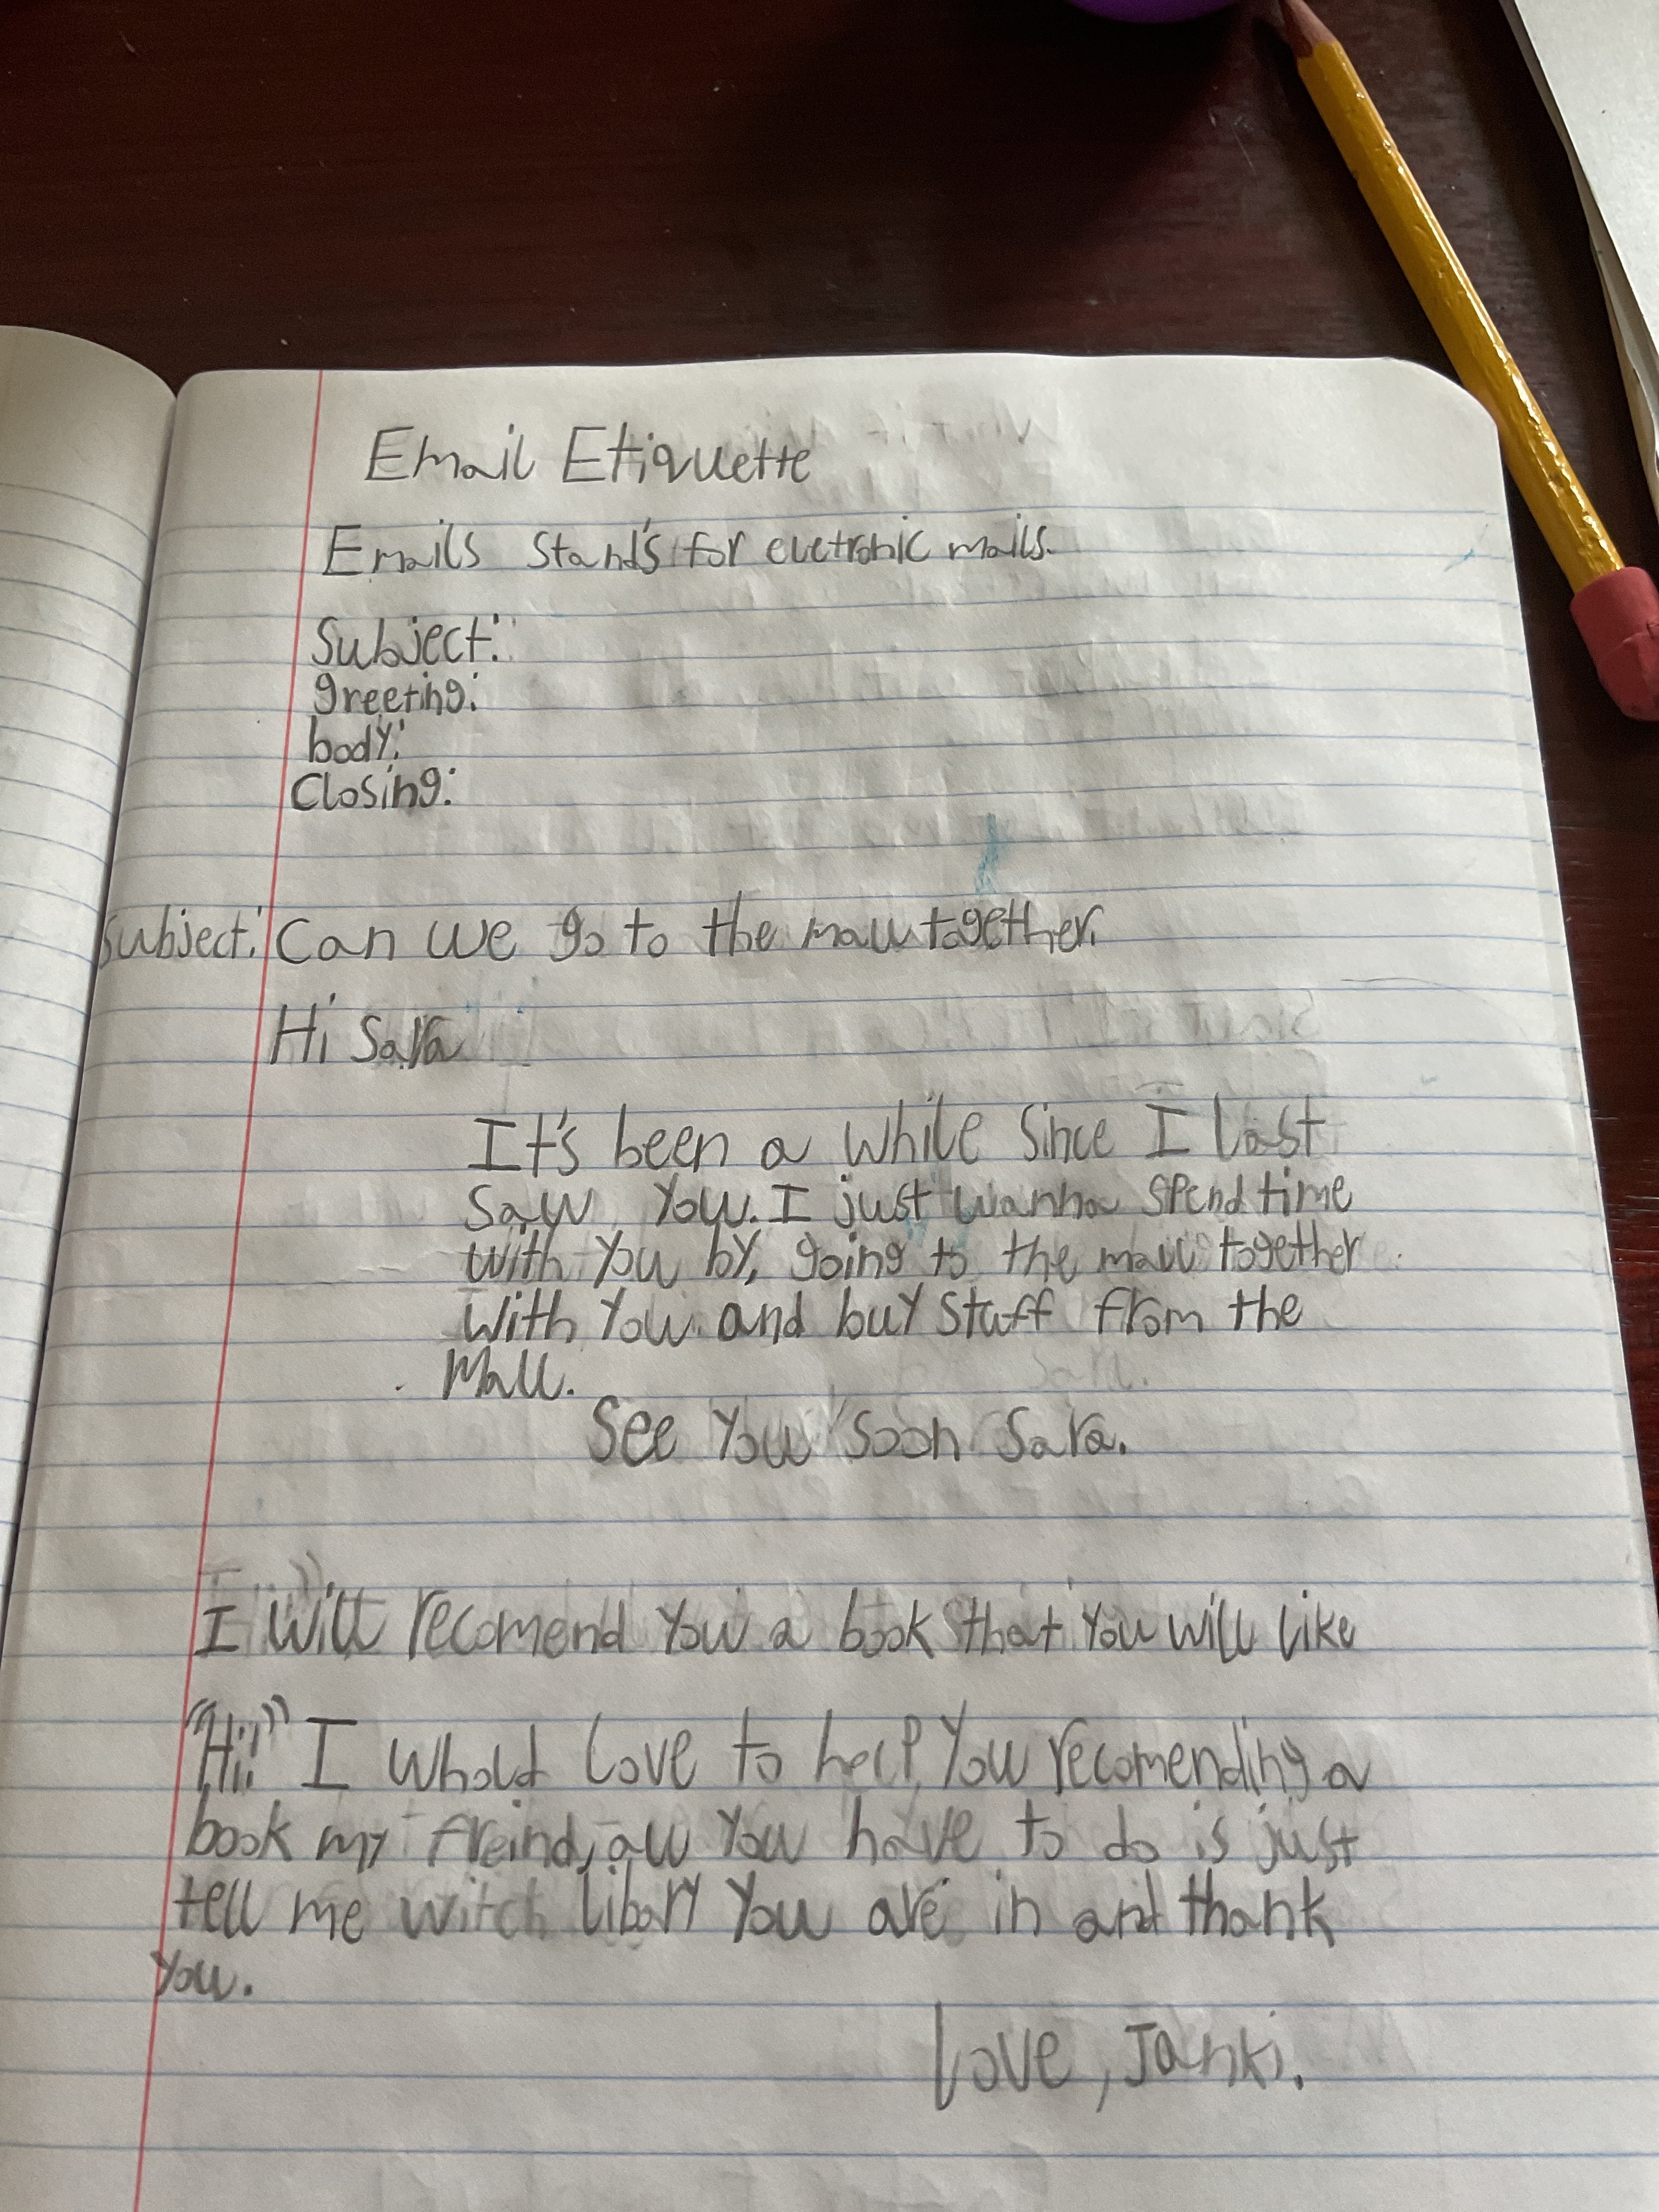 Email Etiquette
Emails stand's for eletronic mails.
Subject:
greeting:
body:
Closing:
Subject: Can we go to the mall together.
Hi Sara
It's been a while since I last
saw you. I just wanna spend time
with you by, going to the mall together
with you. and buy stuff from the
Mall.
See you soon Sara.
I will recomend you a book that you will like
"Hi!" I whold love to help you recomending a
book my freind, all you have to do is just
tell me witch libary you are in and thank
you.
Love, Janki.